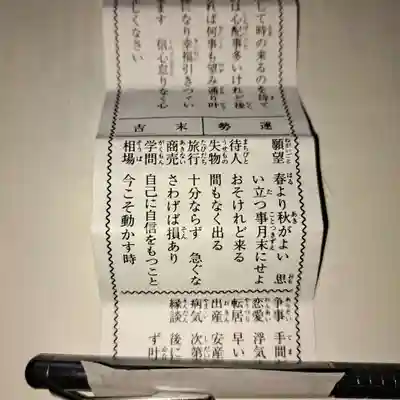 して時の来るのを待て
は心配事多いけれど後
れば何事も望み通り叶
になり幸福引きつづい
ます 信心怠りなく心
正しくなさい
運勢 末吉
願望 春より秋がよい 思
い立つ事月末にせよ
待人 おそけれど来る
失物 間もなく出る
旅行 十分ならず 急ぐな
商売 さわげば損あり
学問 自己に自信をもつこと
相場 今こそ動かす時
争事 手間
恋愛 浮気
転居 早い
出産 安産
病気 次第
縁談 後に
ず叶